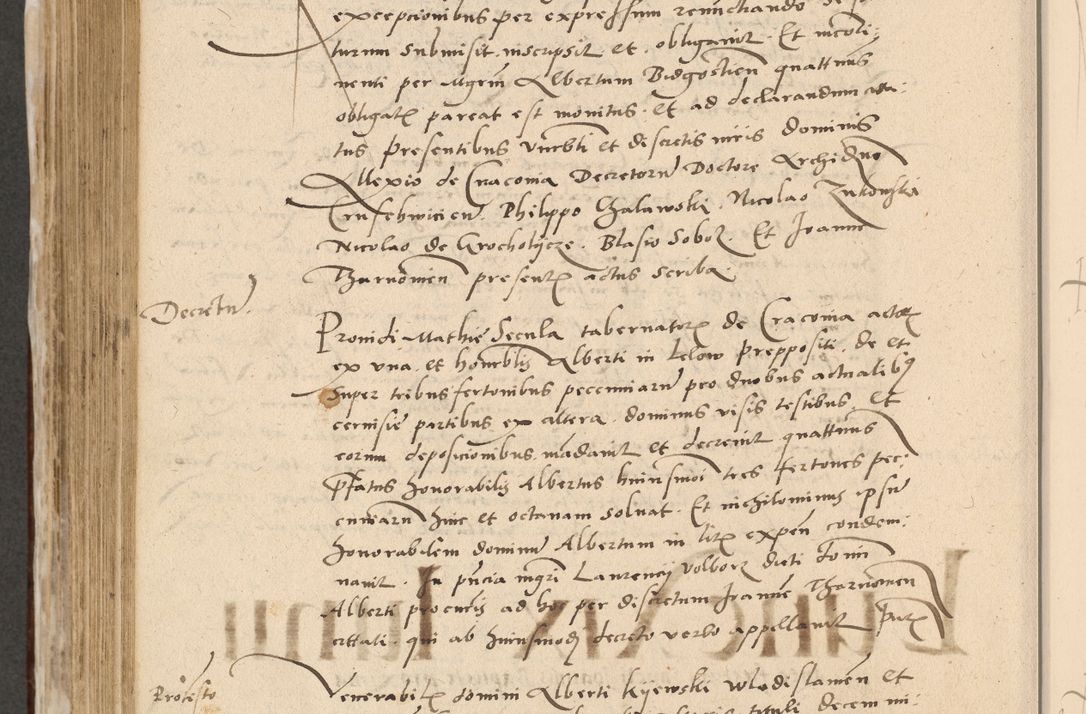 exceptionibus per expressum renunctiando
turum submisit inscripsit et obligavit. Et incoti-
nenti per Mgrm Albertum Bidgostien quattnus
obligatz pareat est monitus. Et ad declarandum
tus presentibus vnrbli et discretis viris dominis
Allexio de Cracovia Decretoru Doctore Archidno
Philippo Chalawski. Nicolao Zukowski
Nicolao de Grocholycze. Blasio Sobol. Et Joanne
Tharnowien presentz actus scriba
Decretu.
Providi Mathie Secula tabernatoris de Cracovia actoris
ex vna. et honrblis Alberti in Lelow prepositi. de et
super tribus fertonibus pecuniaru pro duobus actualibus
cervisie partibus ex altera. dominus visis testibus et
eorum deposicionibus mandavit et decrevit quattnus
pfatus honorabilis Albertus huiusmoi tres fertones pec-
cuniaru hinc et octavam solvat. Et nichilominus ipsu
honorabilem dominu Albertum in litis expen condem-
navit. In pncia mgri Laurencij Volborz dicti domi
Alberti procuris ad hoc per discretum Joanne Tharnowien
cittati. qui ab huiusmodi decreto verbo appellavit
Protesto
Venerabilis domini Alberti Kijewski Wladislavien et
tituli decem mi-